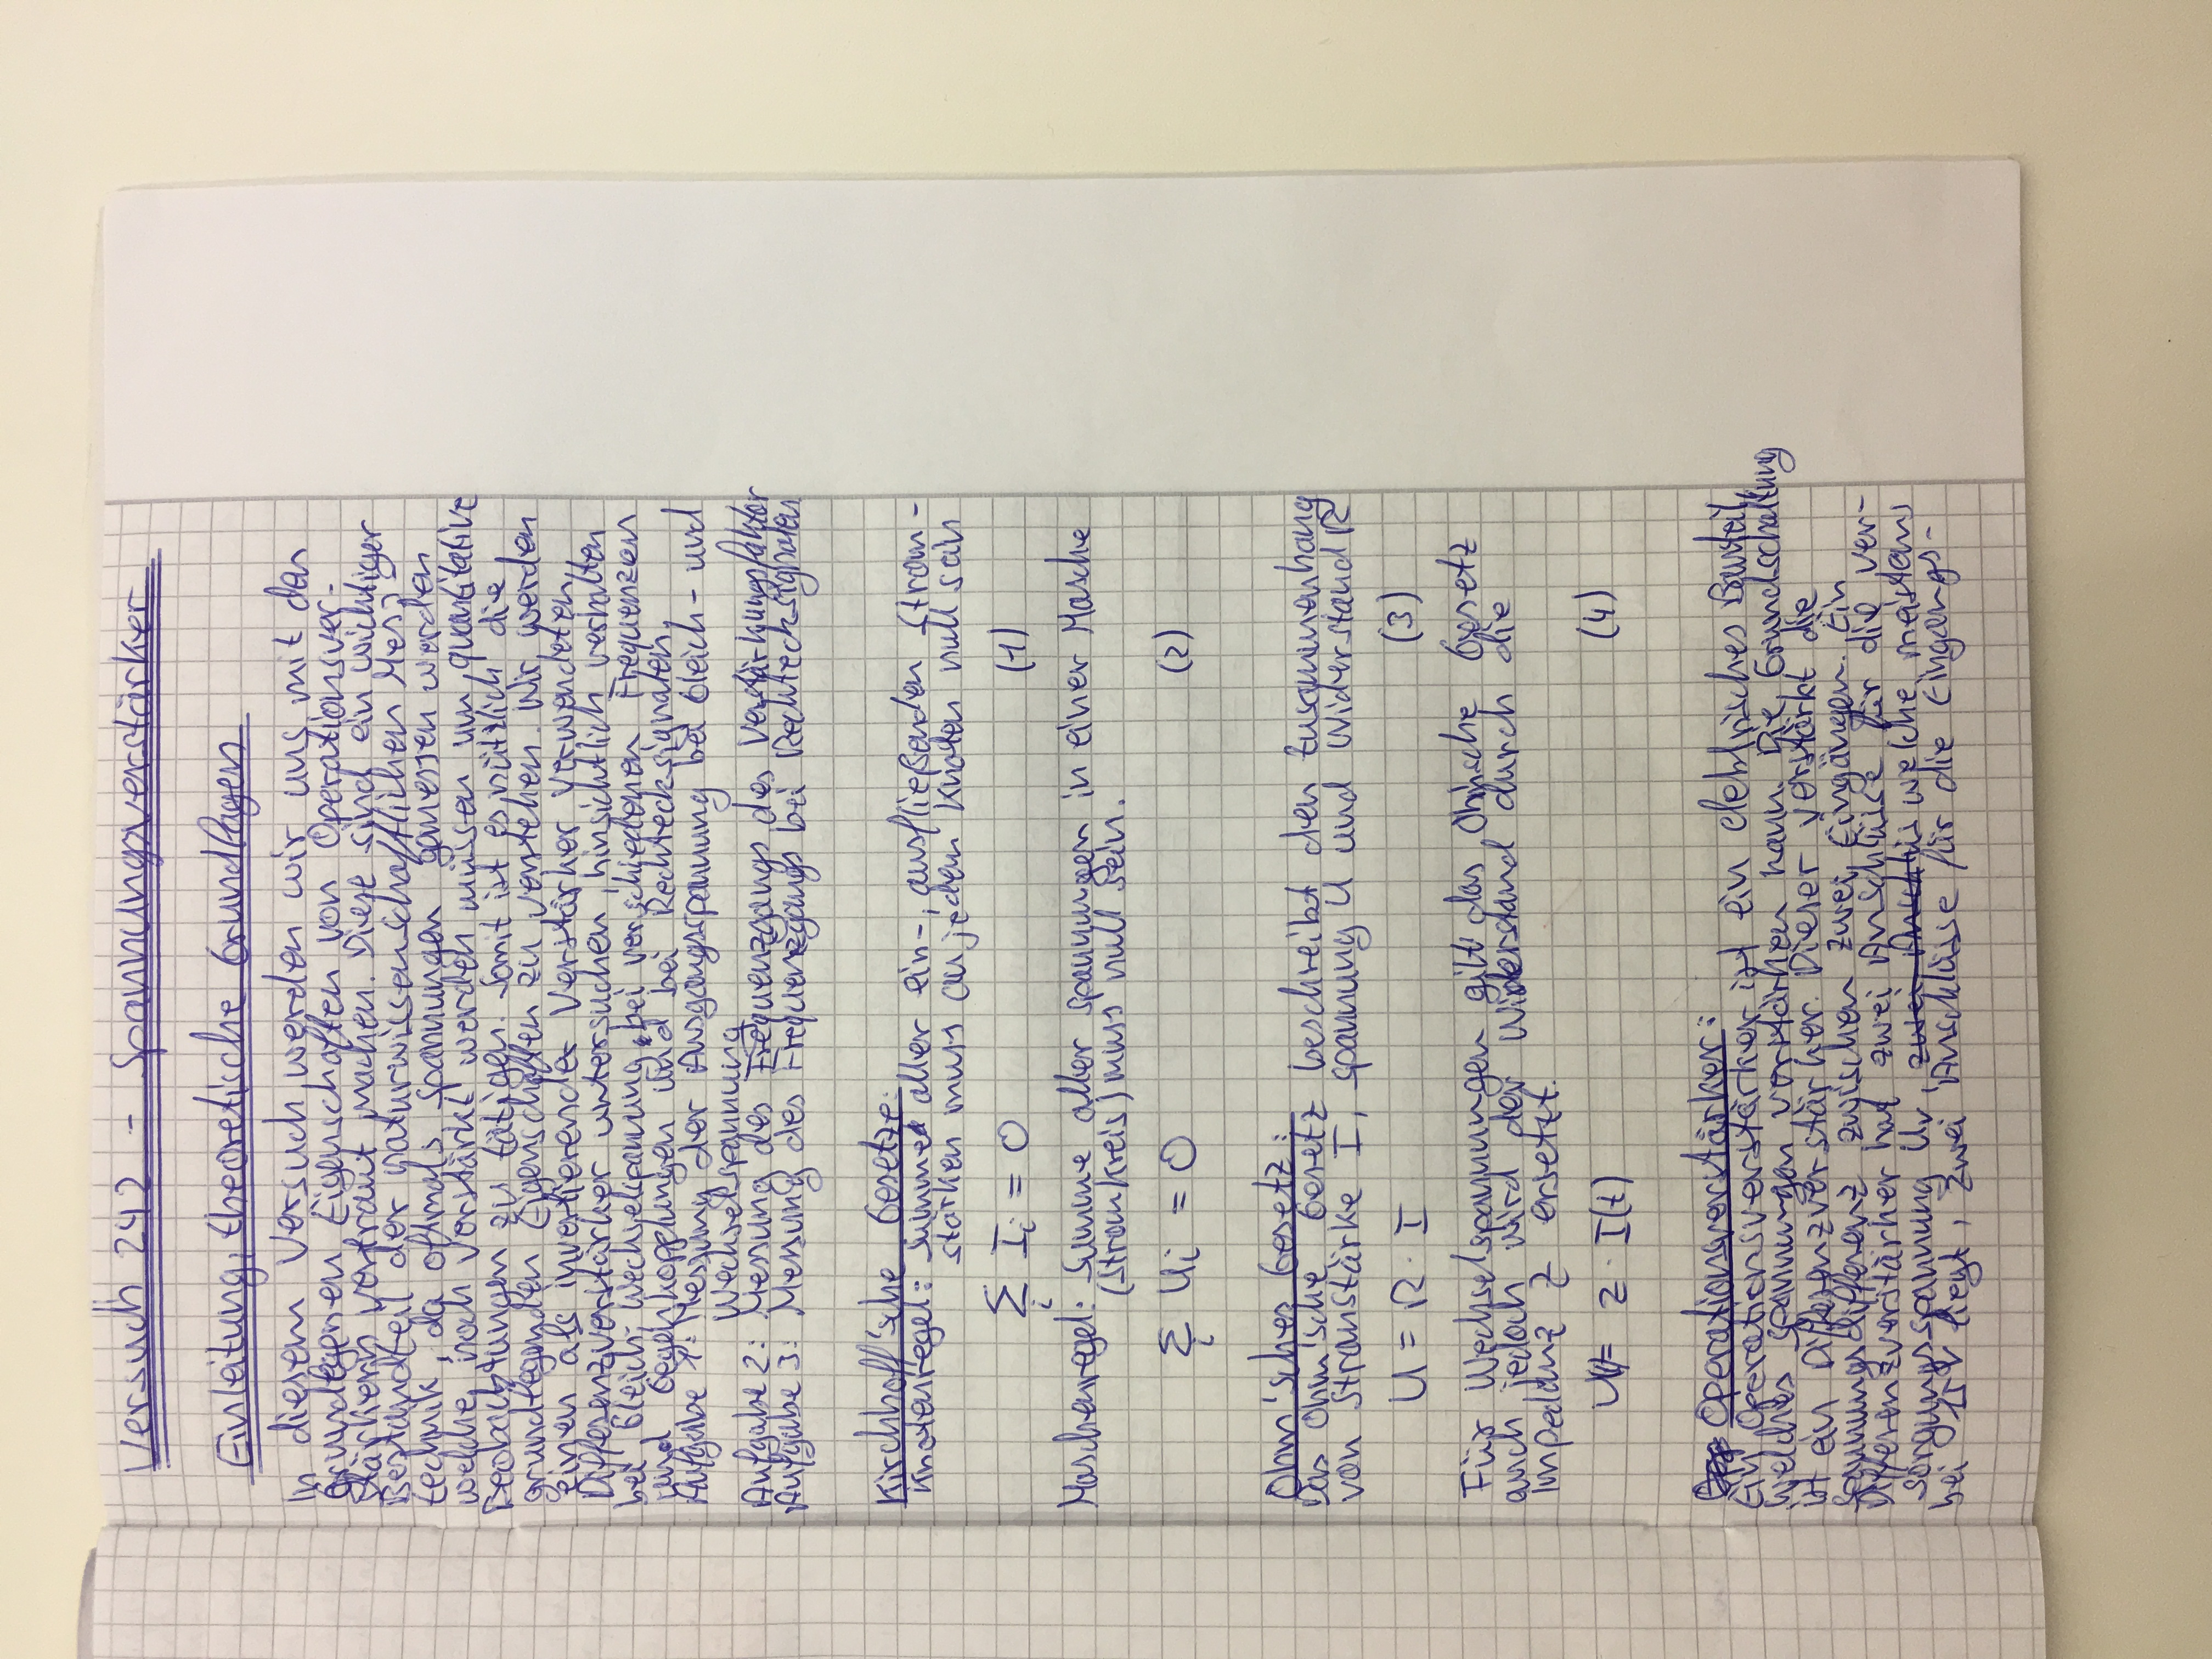 Versuch 242 - Spannungsverstärker
Einleitung, theoretische Grundlagen
In diesem Versuch werden wir uns mit den
grundlegenen Eigenschaften von Operationsver-
stärkern vertraut machen. Diese sind ein wichtiger
Bestandteil der naturwissenschaftlichen Mess-
technik, da oftmals Spannungen gemessen werden
welche noch verstärkt werden müssen um quantitative
Beobachtungen zu tätigen. Somit ist es nützlich die
grundlegenden Eigenschaften zu verstehen. Wir werden
einen als invertierender Verstärker verwendeten
Differenzverstärker untersuchen, hinsichtlich verhalten
bei Gleich-, Wechselspannung, bei verschiedenen Frequenzen
und Gegenkopplungen und bei Rechtecksignalen.
Aufgabe 1: Messung der Ausgangsspannung bei Gleich- und
Wechselspannung
Aufgabe 2: Messung des Frequenzgangs des Verstärkungsfaktor
Aufgabe 3: Messung des Frequenzgangs bei Rechtecksignalen
Kirchhoff'sche Gesetze:
Knotenregel: Summe aller ein-, ausfließenden Strom-
stärken muss an jedem Knoten null sein
∑ I_i = 0 (1)
i
Maschenregel: Summe aller Spannungen in einer Masche
(Stromkreis) muss null sein.
∑ U_i = 0 (2)
i
Ohm'sches Gesetz:
Das Ohm'sche Gesetz beschreibt den Zusammenhang
von Stromstärke I, Spannung U und Widerstand R
U = R · I (3)
Für Wechselspannungen gilt das Ohm'sche Gesetz
auch jedoch wird der Widerstand durch die
Impedanz Z ersetzt.
U(t) = Z · I(t) (4)
Operationsverstärker:
Ein Operationsverstärker ist ein elektrisches Bauteil,
welches Spannungen verstärken kann. Die Grundschaltung
ist ein Differenzverstärker. Dieser verstärkt die
Spannungsdifferenz zwischen zwei Eingängen. Ein
Differenzverstärker hat zwei Anschlüsse für die Ver-
sorgungsspannung U_v, welche meistens
bei 15V liegt, zwei Anschlüsse für die Eingangs-